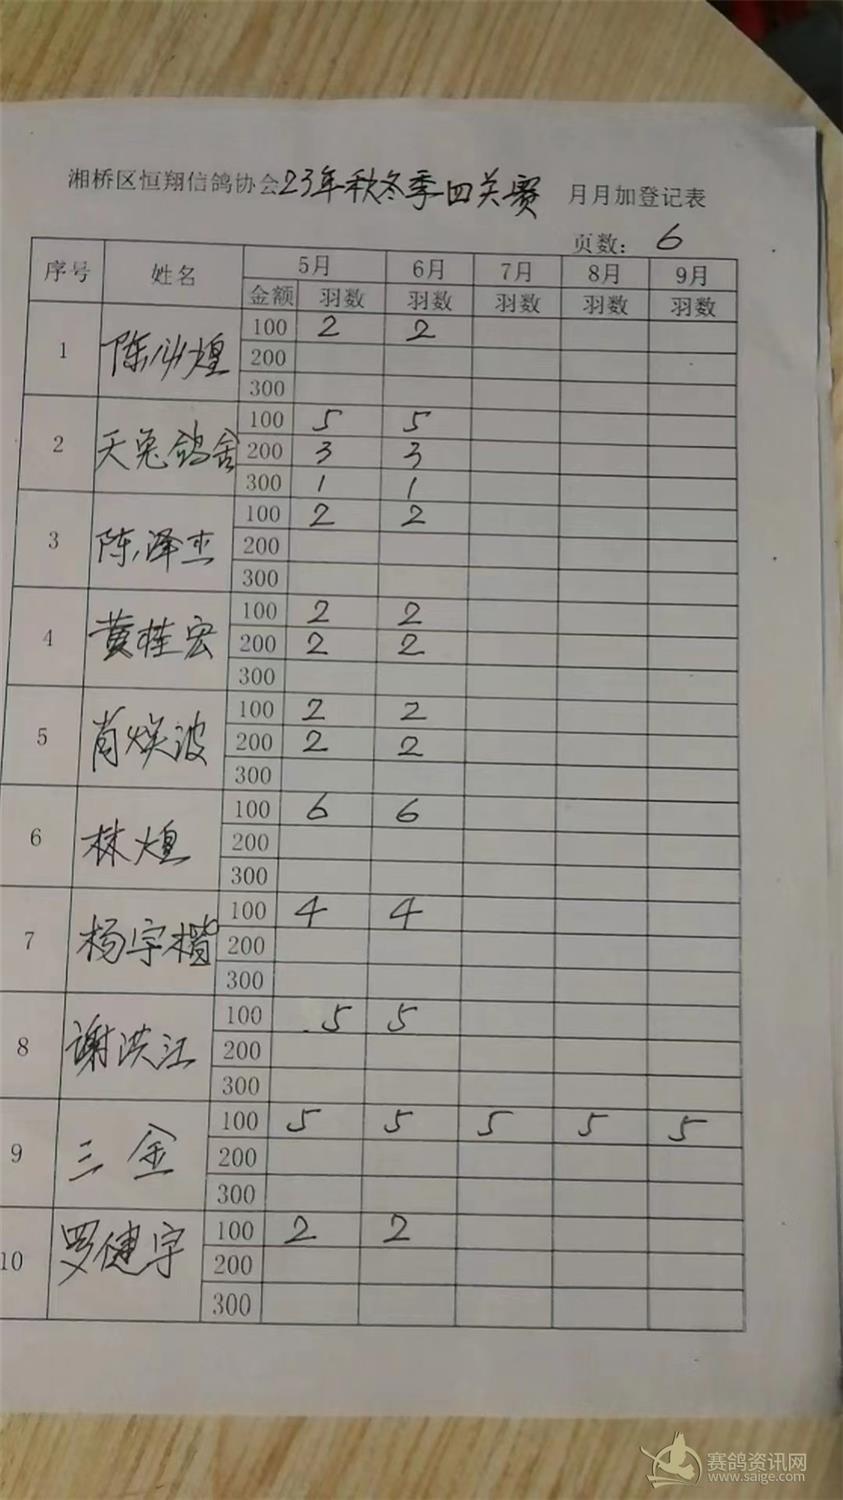 湘桥区恒翔信鸽协会23年秋冬季四关赛 月月加登记表
页数: 6
序号 姓名 5月 6月 7月 8月 9月
金额 羽数 羽数 羽数 羽数 羽数
1 陈少煌 100 2 2
200
300
2 天兔鸽舍 100 5 5
200 3 3
300 1 1
3 陈泽杰 100 2 2
200
300
4 黄桂宏 100 2 2
200 2 2
300
5 肖焕波 100 2 2
200 2 2
300
6 林煌 100 6 6
200
300
7 杨宇楷 100 4 4
200
300
8 谢洪江 100 5 5
200
300
9 三金 100 5 5 5 5 5
200
300
10 罗健宇 100 2 2
200
300
赛鸽资讯网
www.saige.com